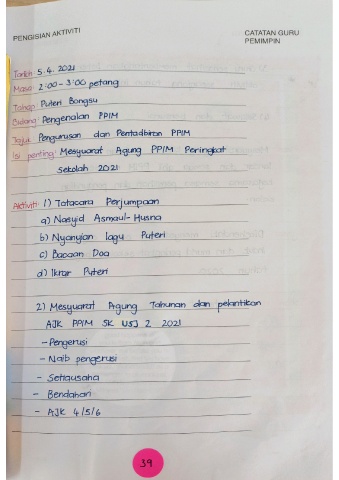 PENGISIAN AKTIVITI
CATATAN GURU
PEMIMPIN
Tarikh: 5.4.2021
Masa: 2:00 - 3:00 petang
Tahap: Puteri Bongsu
Bidang: Pengenalan PPIM
Tajuk: Pengurusan dan Pentadbiran PPIM
Isi penting: Mesyuarat Agung PPIM Peringkat
Sekolah 2021
Aktiviti: 1) Tatacara Perjumpaan
a) Nasyid Asmaul-Husna
b) Nyanyian lagu Puteri
c) Bacaan Doa
d) Ikrar Puteri
2) Mesyuarat Agung Tahunan dan pelantikan
AJK PPIM SK USJ 2 2021
- Pengerusi
- Naib pengerusi
- Setiausaha
- Bendahari
- AJK 4/5/6
39